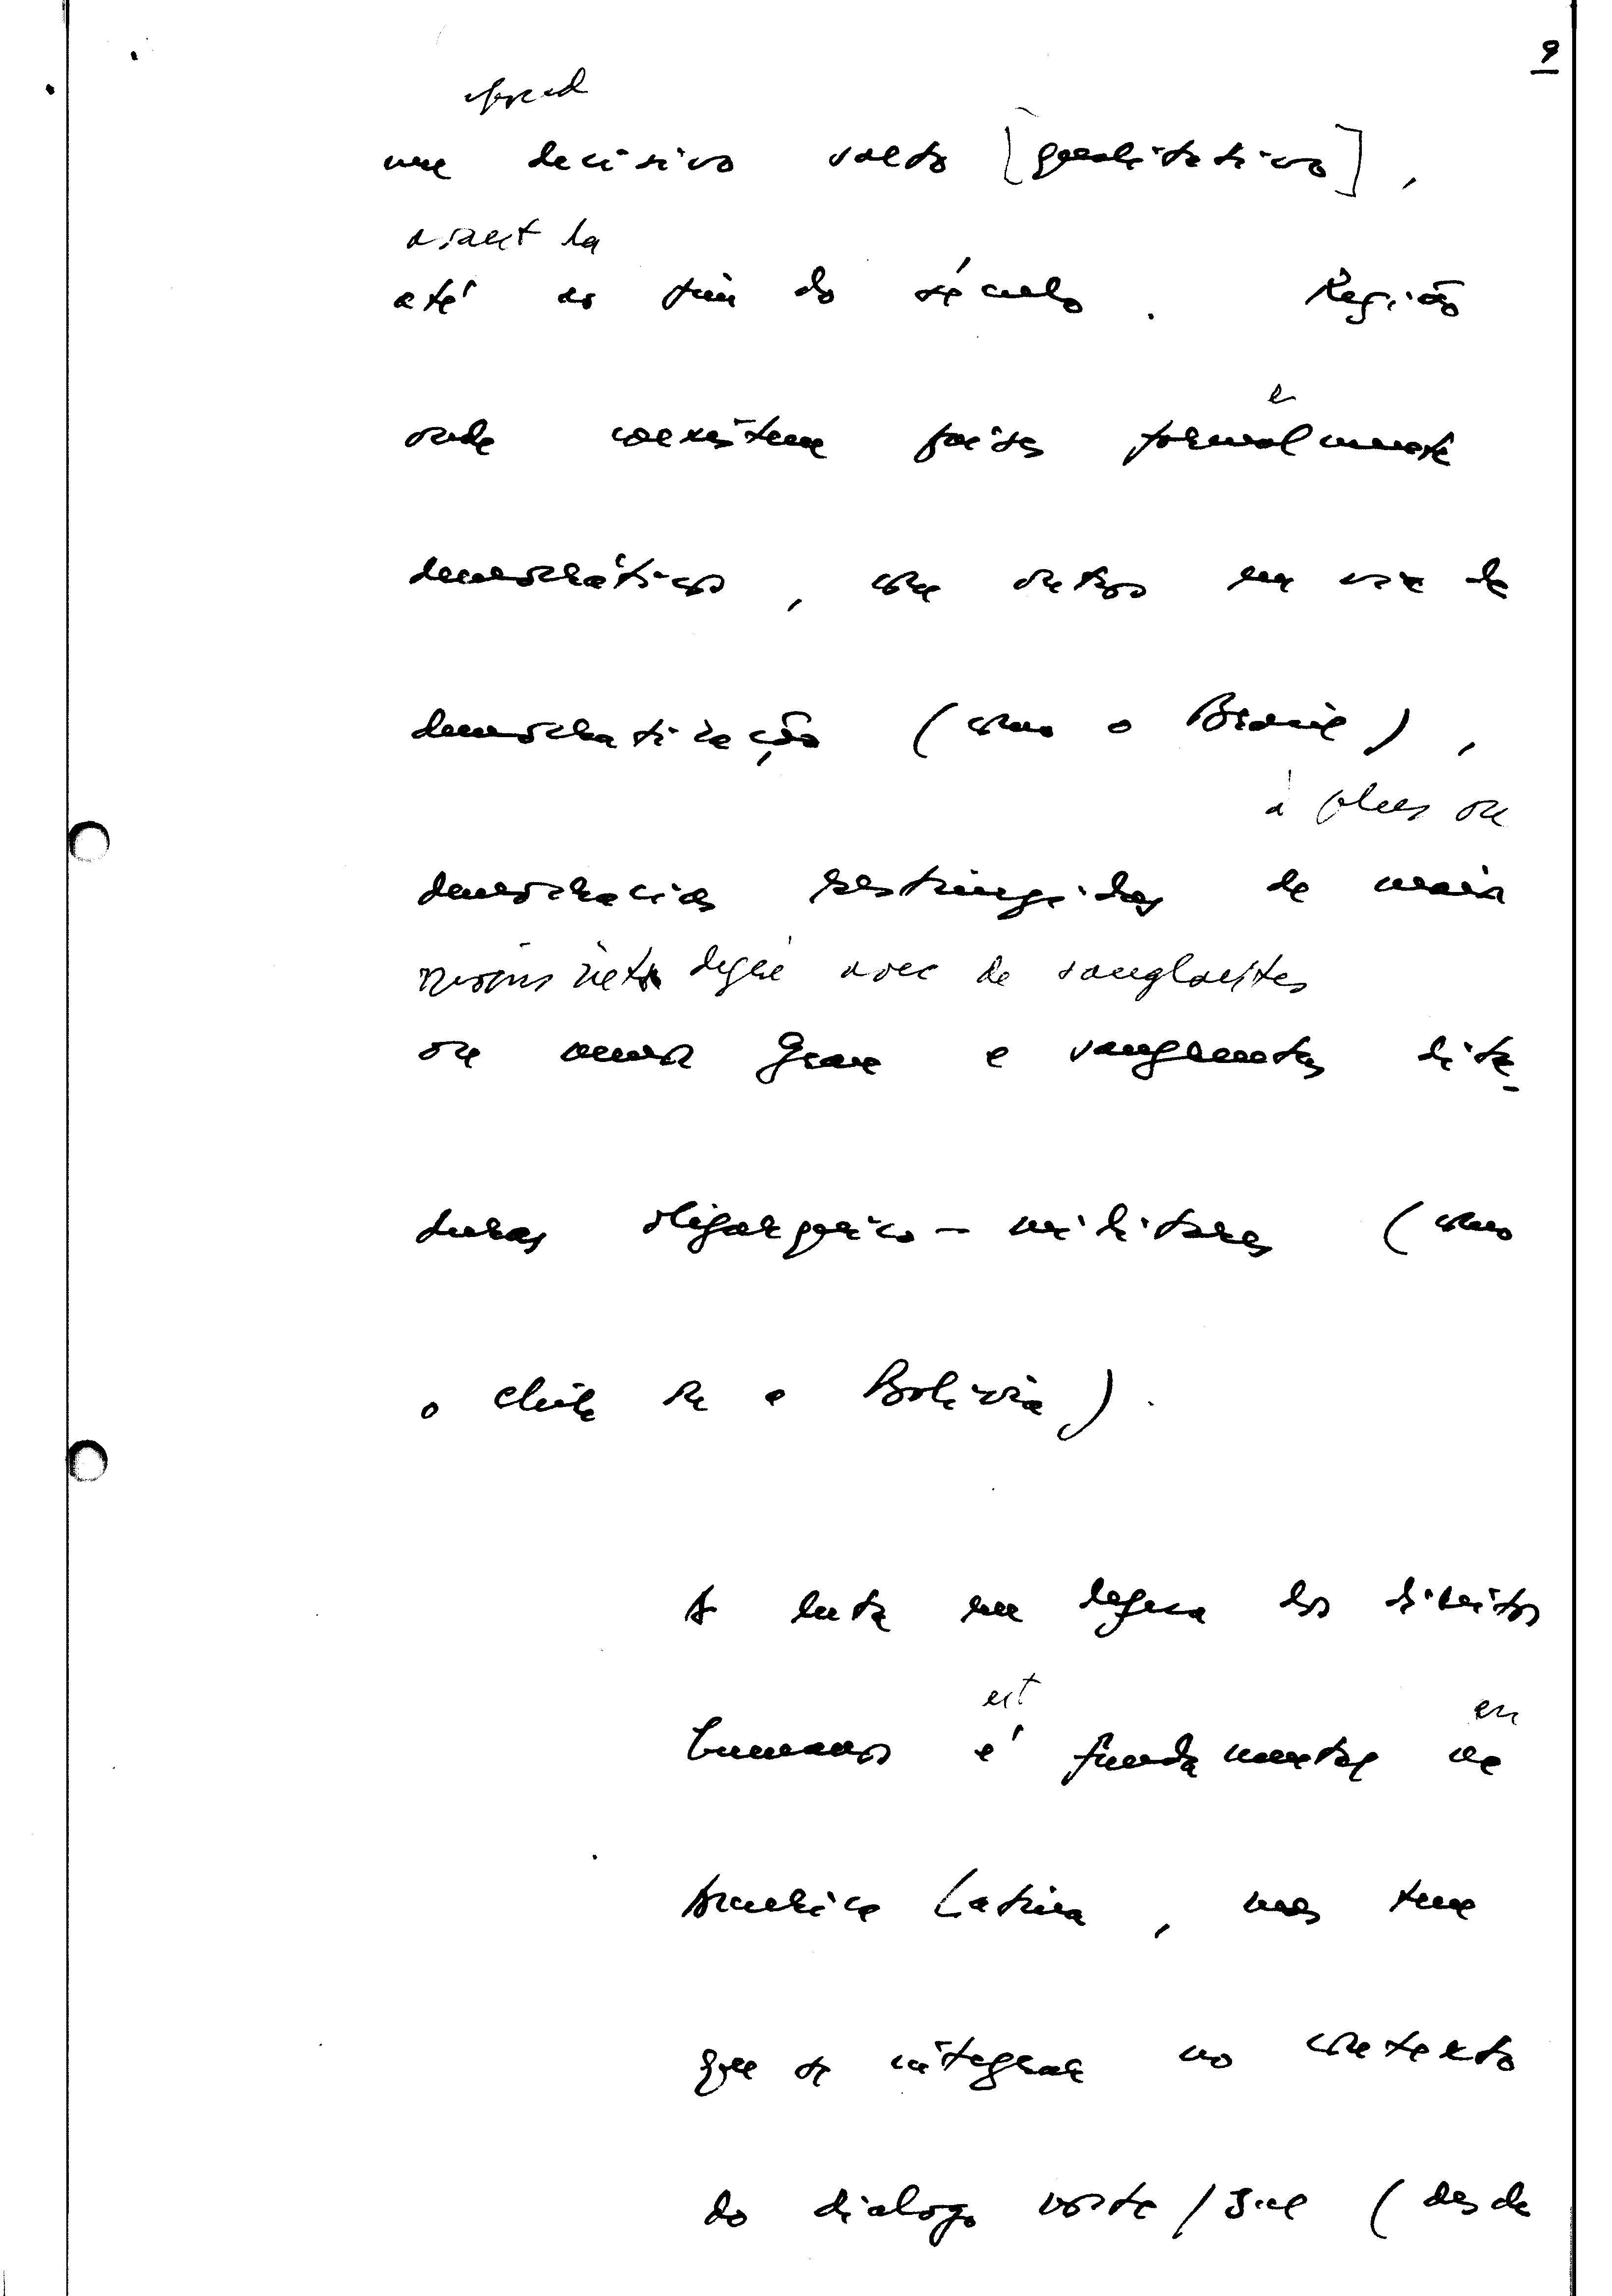 9
um decisivo salto [qualitativo],
avant la
até ao fim do século. Região
e
onde coexistem países formalmente
democráticos, com outros em via de
democratização (como o Brasil),
à plus ou
democracias restringidas de maior
moins net degré avec de sanglantes
ou menor grau e sangrentas dita-
duras oligarquico-militares (como
o Chile ou a Bolivia).
A luta em defesa dos direitos
est en
humanos é fundamental na
America Latina, mas tem
que se integrar no contexto
do dialogo norte/Sul (desde